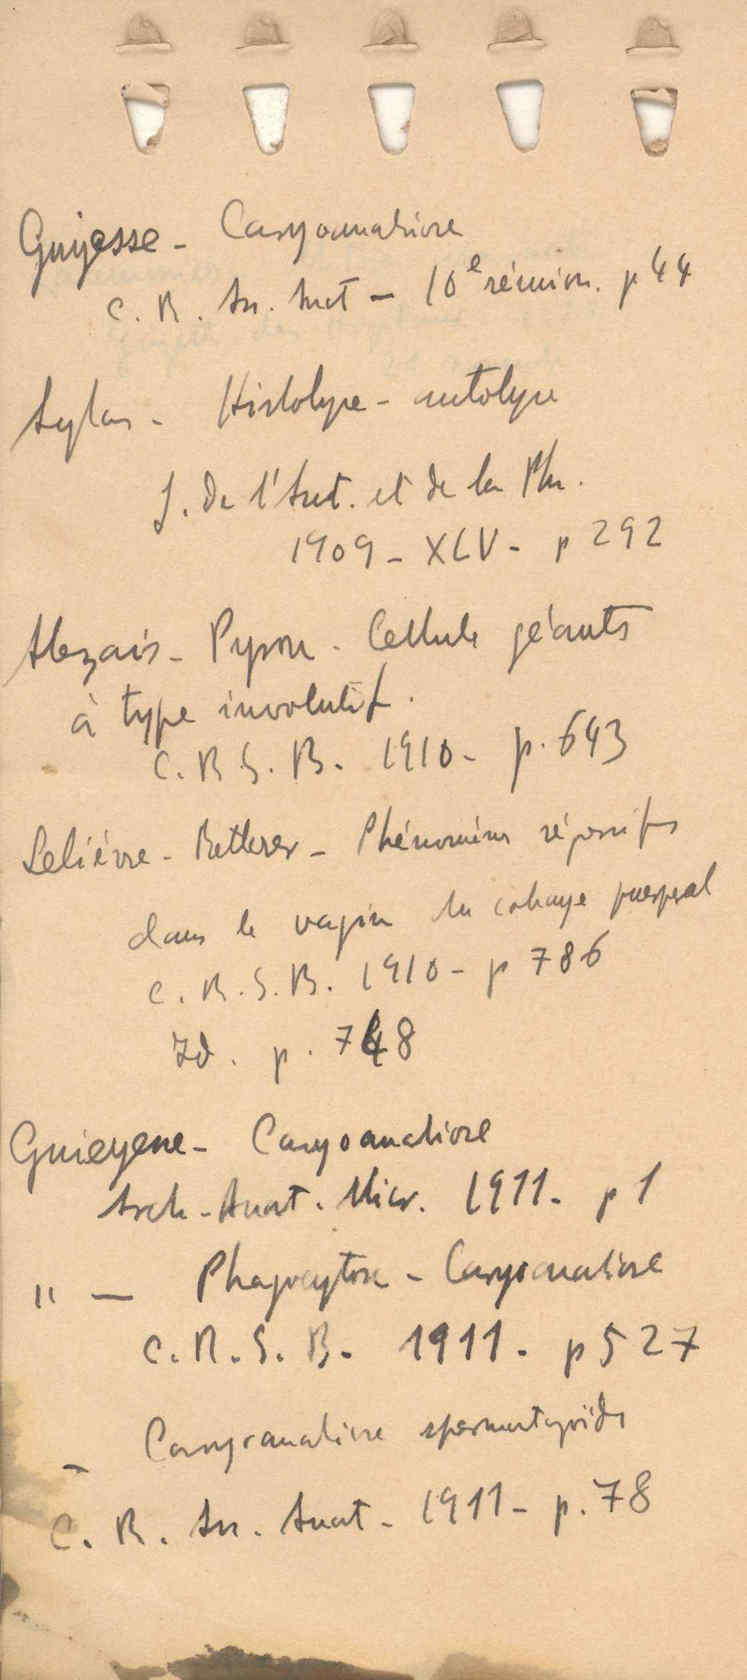 Guiyesse - Caryoanabiose
C. R. Ass. Anat - 10e réunion. p 44
Histolyse - autolyse
J. de l'Anat. et de la Phy.
1909 - XLV - p 292
Alezais - Peyron - Cellules géants
à type involutif.
C. R. S. B. 1910 - p. 643
Lelièvre - Retterer - Phénomènes régressifs
dans le vagin du cobaye puerpéral
C. R. S. B. 1910 - p 786
Id. p. 748
Guieyesse - Caryoanabiose
Arch - Anat. Micr. 1911 - p 1
" — Phagocytose - Caryoanabiose
C. R. S. B. 1911 - p 527
– Caryoanabiose spermatozoïde
C. R. Ass. Anat - 1911 - p. 78